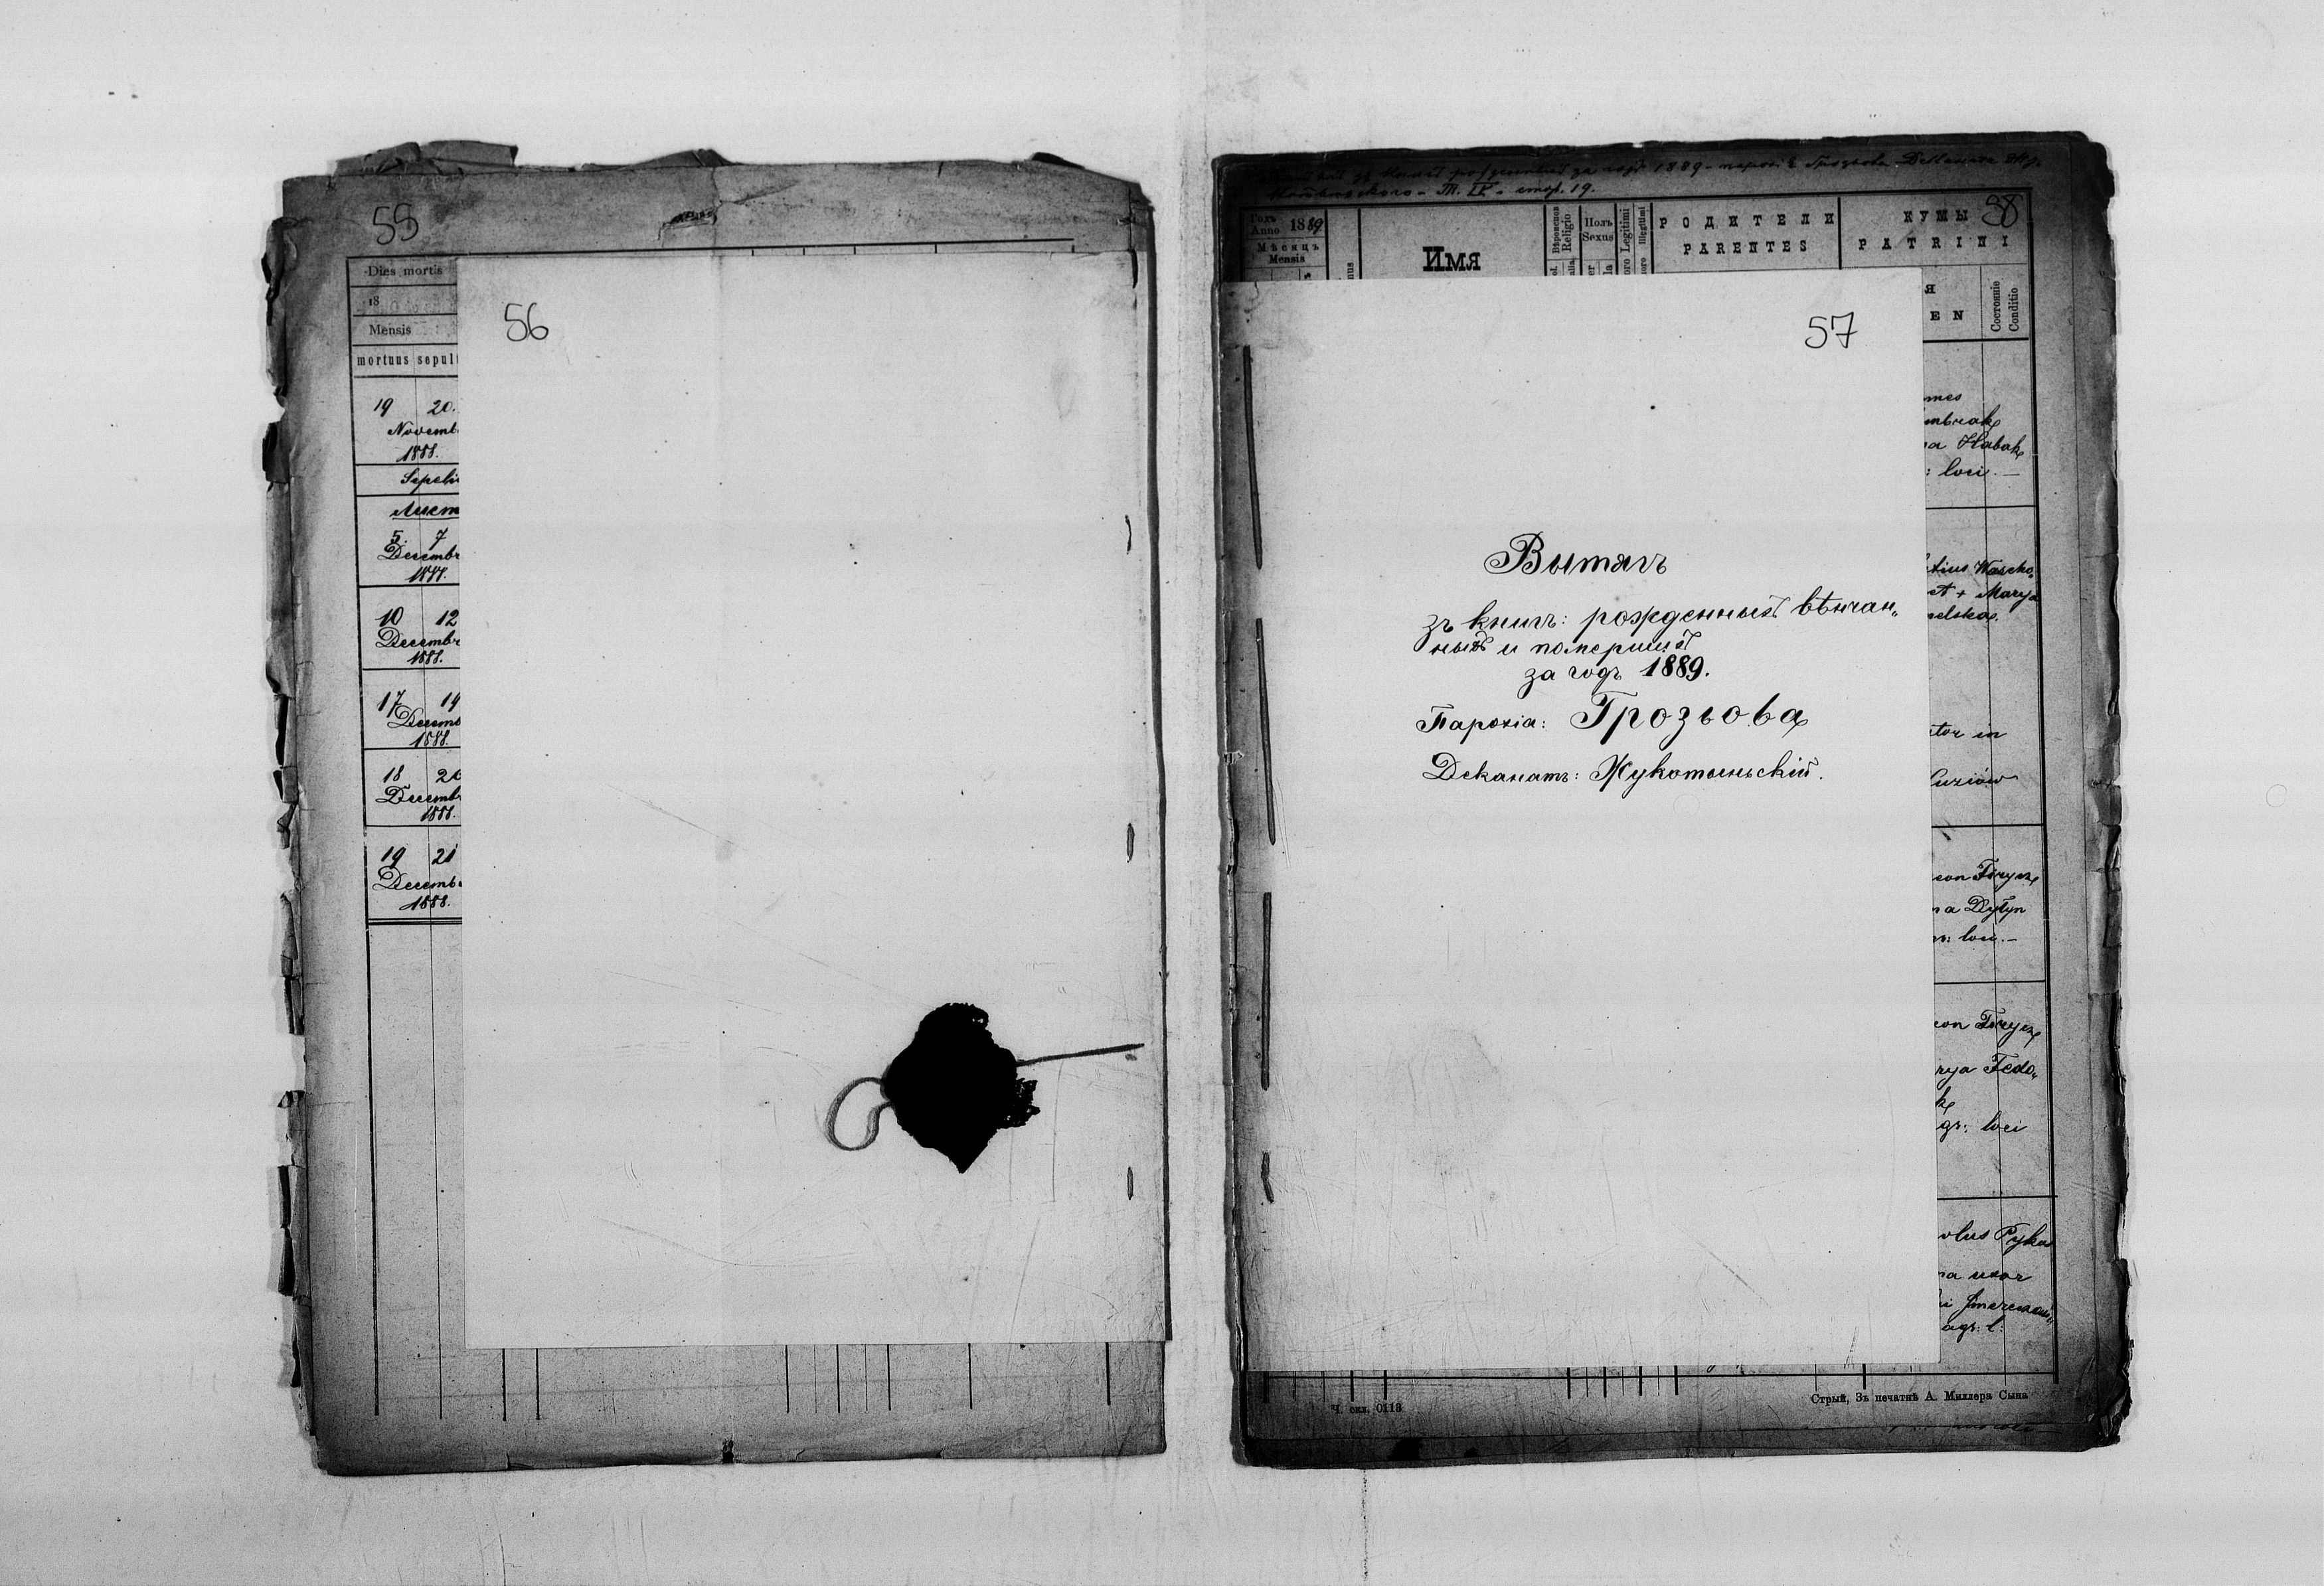 55
Dies mortis
18
Mensis
mortuus sepult
19 20.
Novemb
1888.
Sepeli
5. 7
Decembr
1888.
10 12
Decembr
1888.
17 19
Decemb
1888.
18 20
Decembr
1888.
19 21
Decemb
1888.
56
за годъ 1889 - парохіѣ Грозьова
Т. IV - стор. 19.
38
Годъ
Anno 1889
Мѣсяцъ
Mensis
Имя
Religio
Полъ
Sexus
Legitimi
Illegitimi
РОДИТЕЛИ
PARENTES
КУМЫ
PATRINI
Я
EN
Состояніе
Conditio
57
Вытягъ
зъ книгъ: рожденныхъ вѣнчан„
ныхъ и помершихъ
за годъ 1889.
Парохіа: Грозьова
Деканатъ: Жукотыньскій.
mes
mbrak
a Habak
: loci. —
tius Wascho„
et + Marya
elska.
tor in
luziów
eon Ficycz
na Dytyn
gr: loci. —
eon Ficycz
rya Fedo„
k
gr: loci
olus Pyka
na uxor
agr: l:
Ч. скл. 0113
Стрый, Зъ печатнѣ А. Миллера Сына